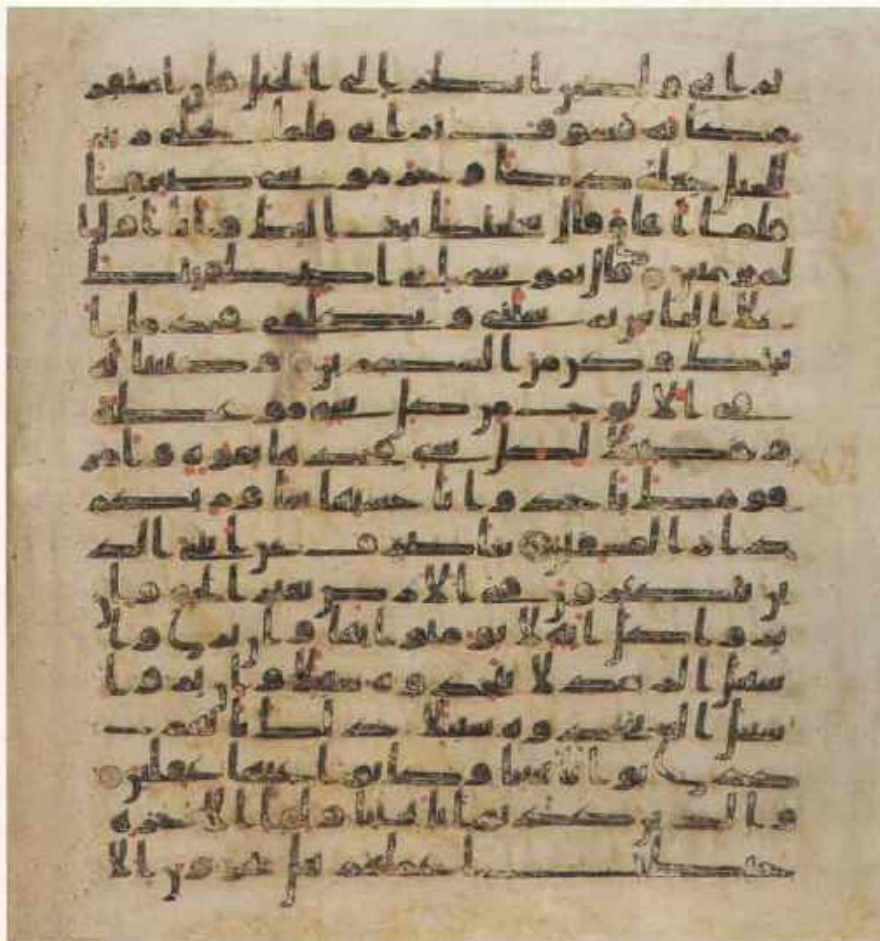 ترىنى ولكن انظر الى الجبل فان استقر
مكانه فسوف ترىنى فلما تجلى ربه
للجبل جعله دكا وخر موسى صعقا
فلما افاق قال سبحنك تبت اليك وانا اول ا
لمومنين قال يموسى انى اصطفيتك
على الناس برسلتى وبكلمى فخذ ما ا
تيتك وكن من الشكرين وكتبنا له
فى الالوح من كل شى موعظة
وتفصيلا لكل شى فخذها بقوة وامر
قومك ياخذوا باحسنها ساوريكم
دار الفسقين ساصرف عن ايتى الذ
ين يتكبرون فى الارض بغير الحق وان
يروا كل اية لا يومنوا بها وان يروا
سبيل الرشد لا يتخذوه سبيلا وان يروا
سبيل الغى يتخذوه سبيلا ذلك بانهم
كذبوا بايتنا وكانوا عنها غفلين
والذين كذبوا بايتنا ولقا الاخرة
حبطت اعملهم هل يجزون الا